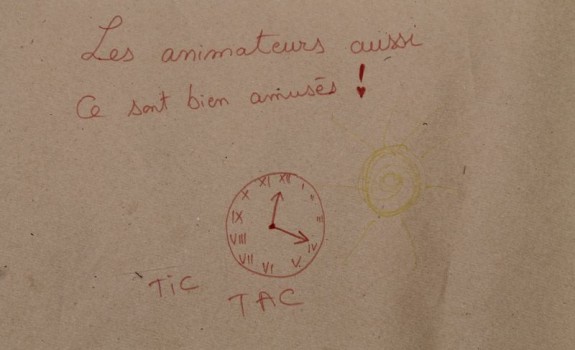 Les animateurs aussi
Ce sont bien amusés !
XI XII I
X II
IX III
VIII IV
VII V
VI
TiC
TAC